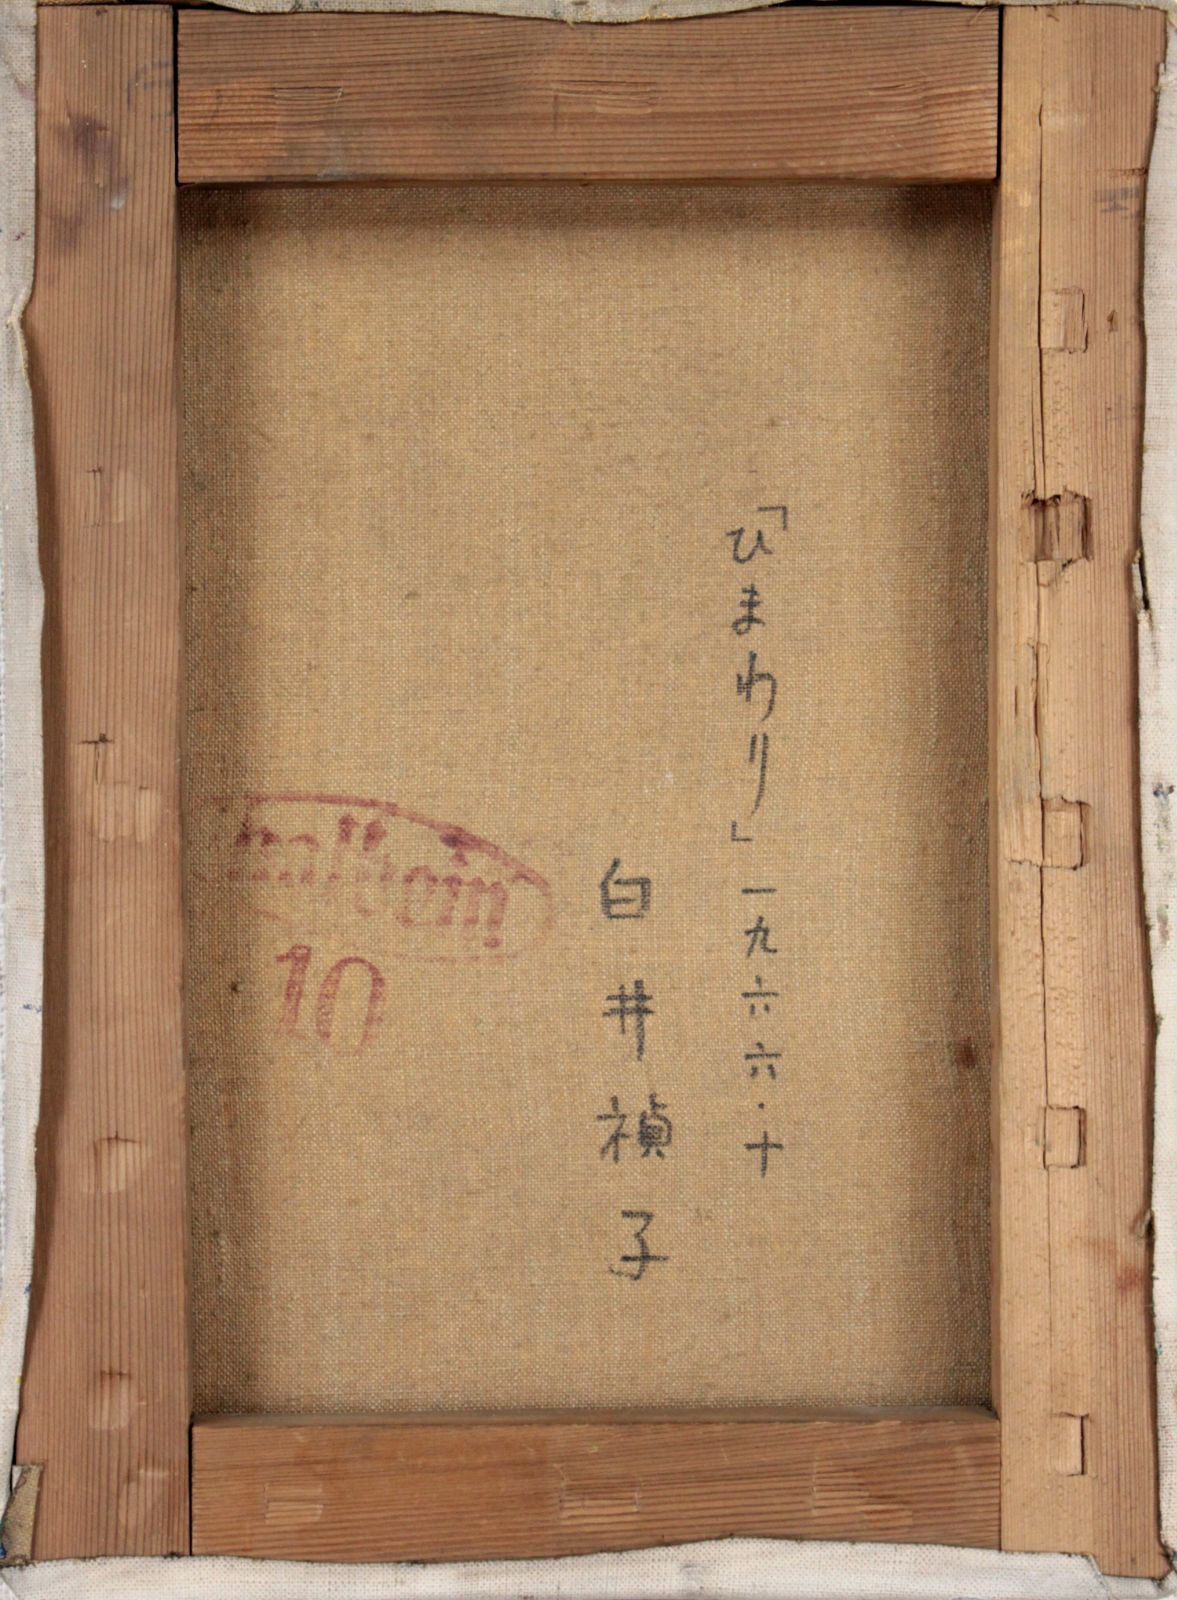 「ひまわり」一九六六・十
白井禎子
10